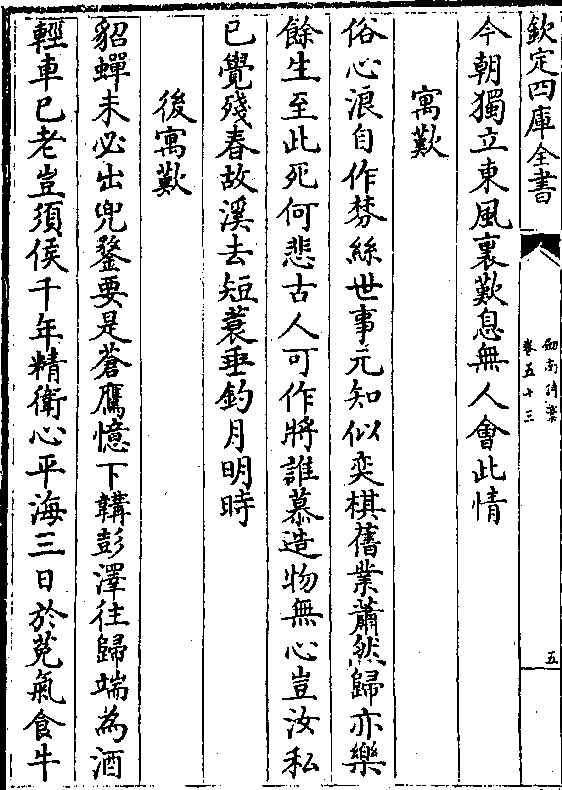 欽定四庫全書
劍南詩槀
卷五十三
五
今朝獨立東風裏歎息無人會此情
寓歎
俗心浪自作棼絲世事元知似奕棋舊業蕭然歸亦樂
餘生至此死何悲古人可作將誰慕造物無心豈汝私
已覺殘春故溪去短蓑垂釣月明時
後寓歎
貂蟬未必出兜鍪要是蒼鷹憶下韝彭澤徃歸端為酒
輕車已老豈須侯千年精衛心平海三日於菟氣食牛